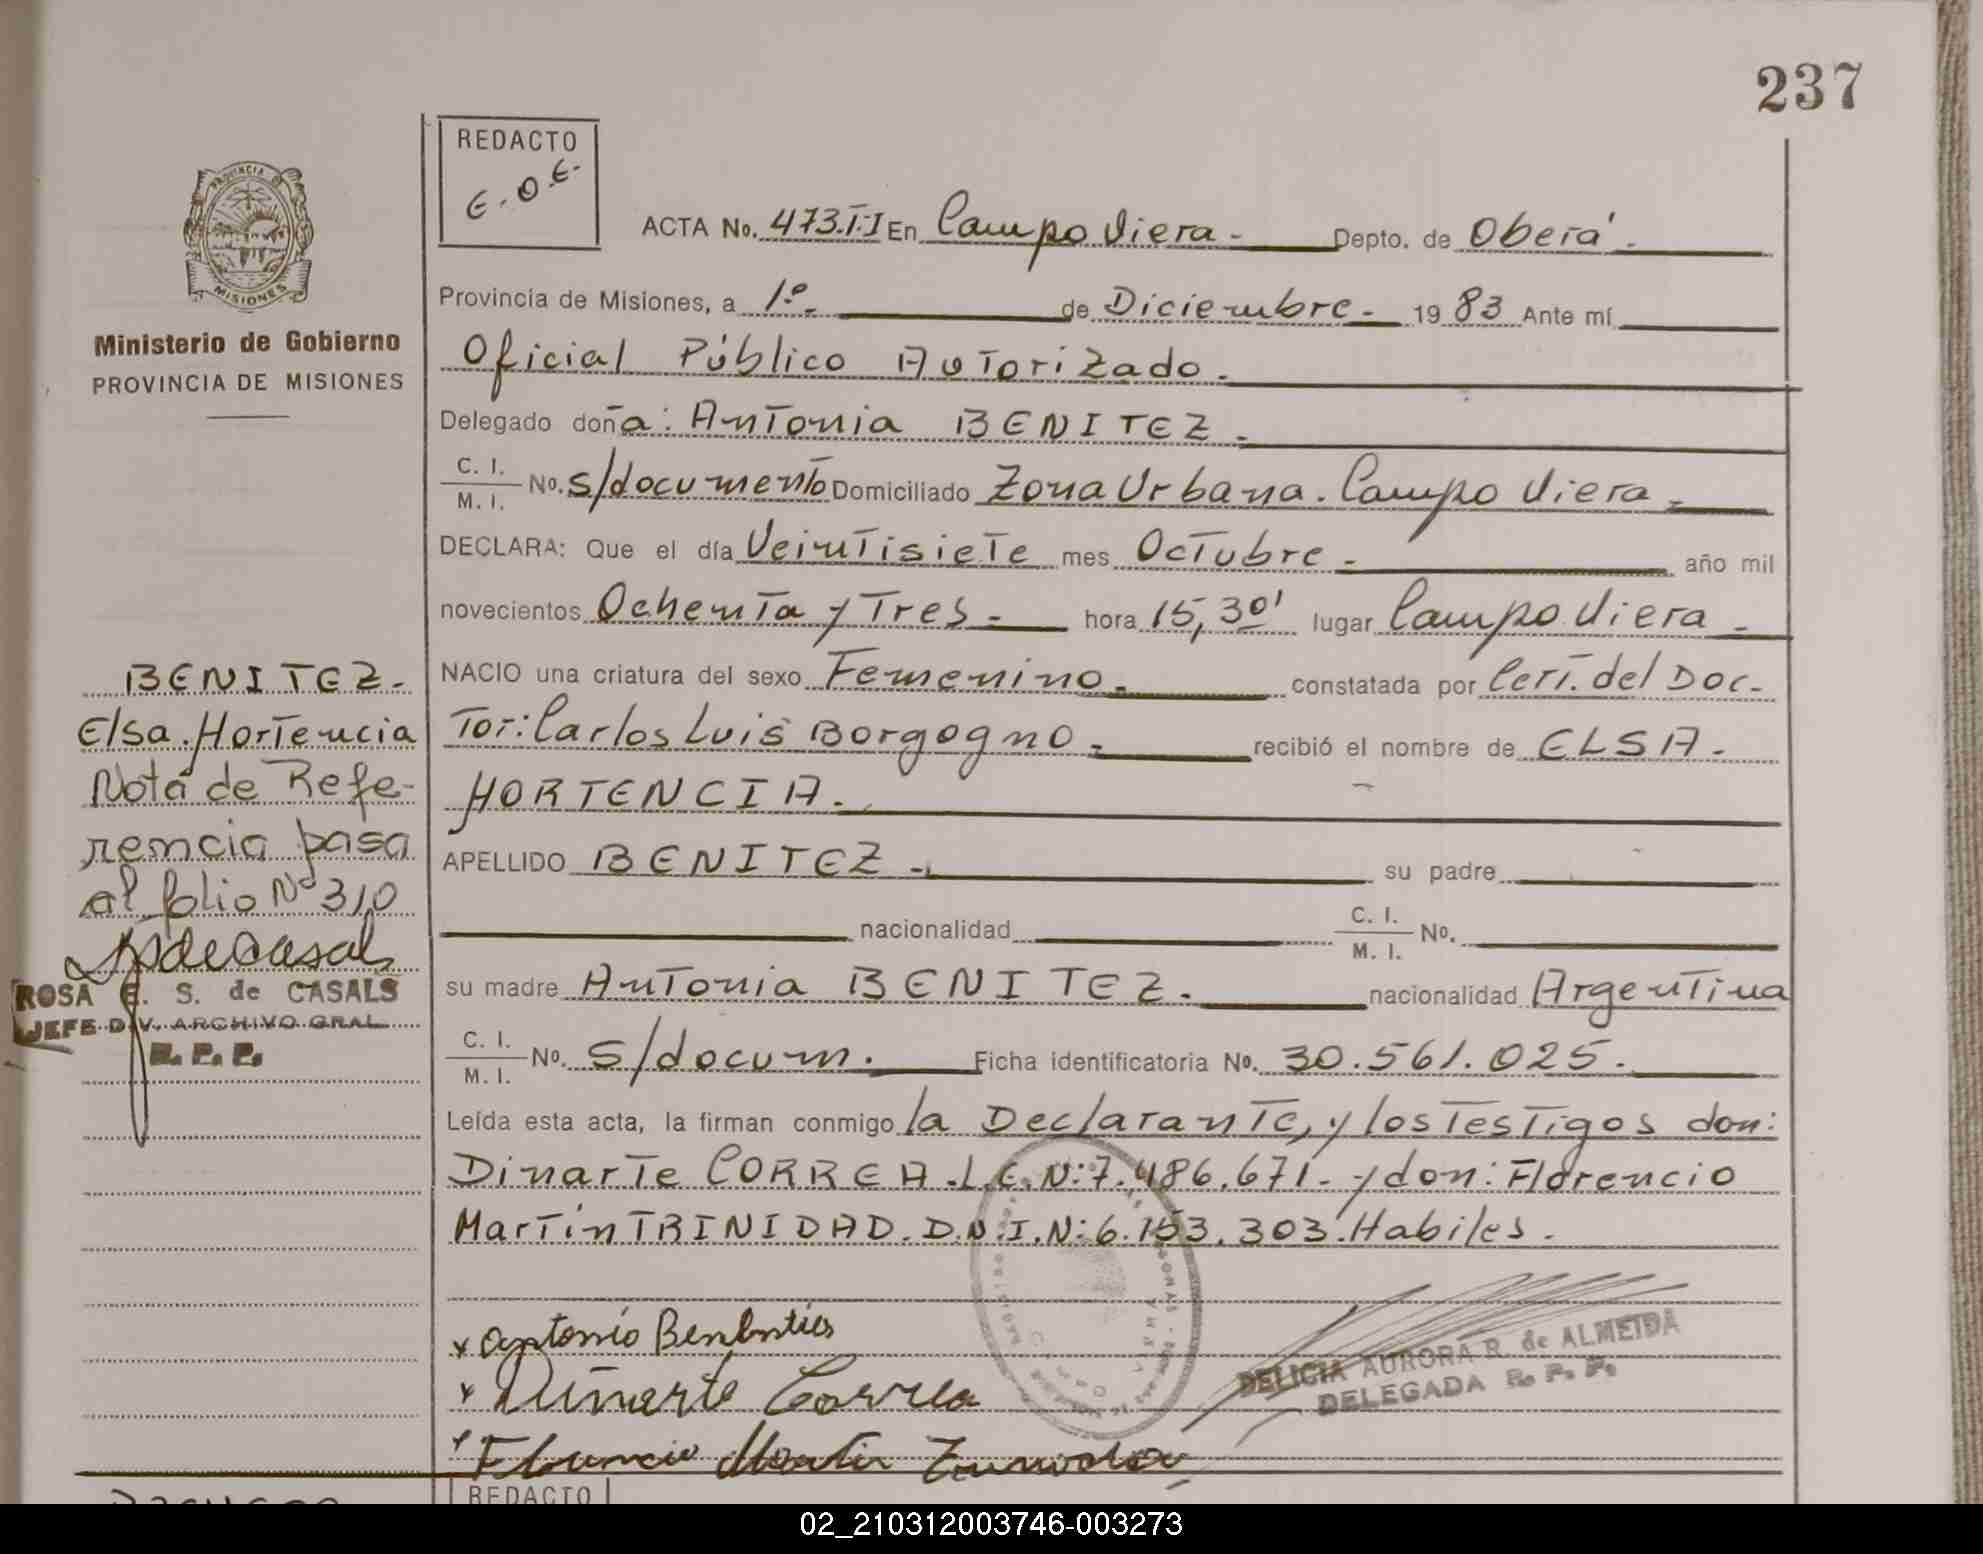 237
REDACTO
E.O.E.
PROVINCIA DE
MISIONES
Ministerio de Gobierno
PROVINCIA DE MISIONES
ACTA No. 473.T.I En Campo Viera.- Depto. de Oberá.-
Provincia de Misiones, a 1º.- de Diciembre.- 1983 Ante mí
Oficial Público Autorizado.-
Delegado doña: Antonia BENITEZ.-
C. I. / M. I. No. s/documento Domiciliado Zona Urbana. Campo Viera.-
DECLARA: Que el día Veintisiete mes Octubre.- año mil
novecientos Ochenta y Tres.- hora 15,30' lugar Campo Viera.-
NACIO una criatura del sexo Femenino.- constatada por Cert. del Doc-
tor: Carlos Luis Borgogno.- recibió el nombre de ELSA.-
HORTENCIA.-
APELLIDO BENITEZ.- su padre
nacionalidad C. I. / M. I. No.
su madre Antonia BENITEZ.- nacionalidad Argentina
C. I. / M. I. No. s/docum.- Ficha identificatoria No. 30.561.025.-
Leída esta acta, la firman conmigo la Declarante, y los Testigos don:
Dinarte CORREA.L.E.N:7.486.671.- y don: Florencio
Martín TRINIDAD. D.N.I.N:6.153.303. Habiles.-
BENITEZ.-
Elsa. Hortencia
Nota de Refe-
rencia pasa
al folio Nº 310
ROSA E. S. de CASALS
JEFE DIV. ARCHIVO GRAL
R. P. P.
x Antonio
x Dinarte Correa
x Florencio Martin
DELICIA AURORA R. de ALMEIDA
DELEGADA R. P. P.
REDACTO
02_210312003746-003273